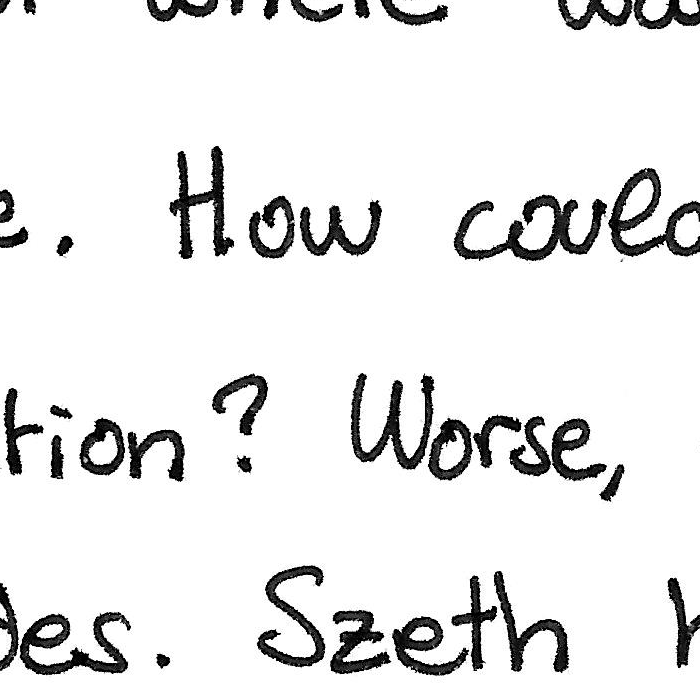 where
. How could
tion? Worse,
des. Szeth